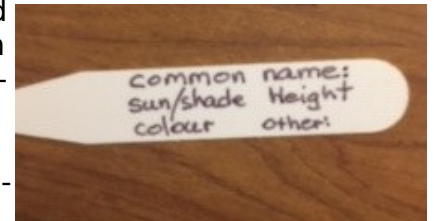 common name:
sun/shade Height
colour other: